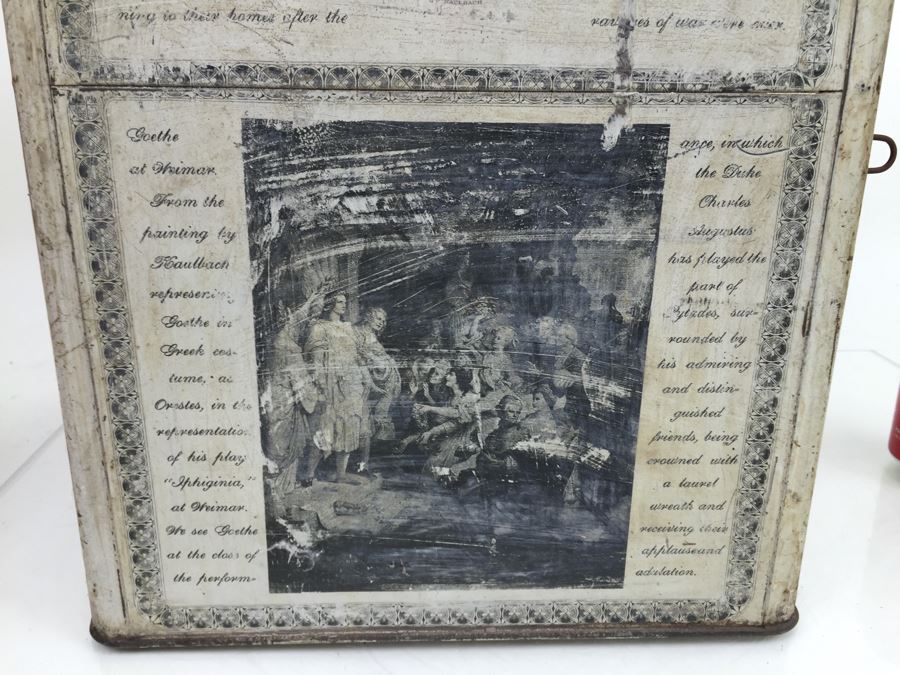 KAULBACH
ning to their homes after the ravages of war were over.
Goethe
at Weimar.
From the
painting by
Kaulbach
represening
Goethe in
Greek cos-
tume, as
Orestes, in the
representation
of his play
"Iphiginia,"
at Weimar.
We see Goethe
at the close of
the perform-
ance, in which
the Duke
Charles
Augustus
has played the
part of
Pylades, sur-
rounded by
his admiring
and distin-
guished
friends, being
crowned with
a laurel
wreath and
receiving their
applause and
adulation.